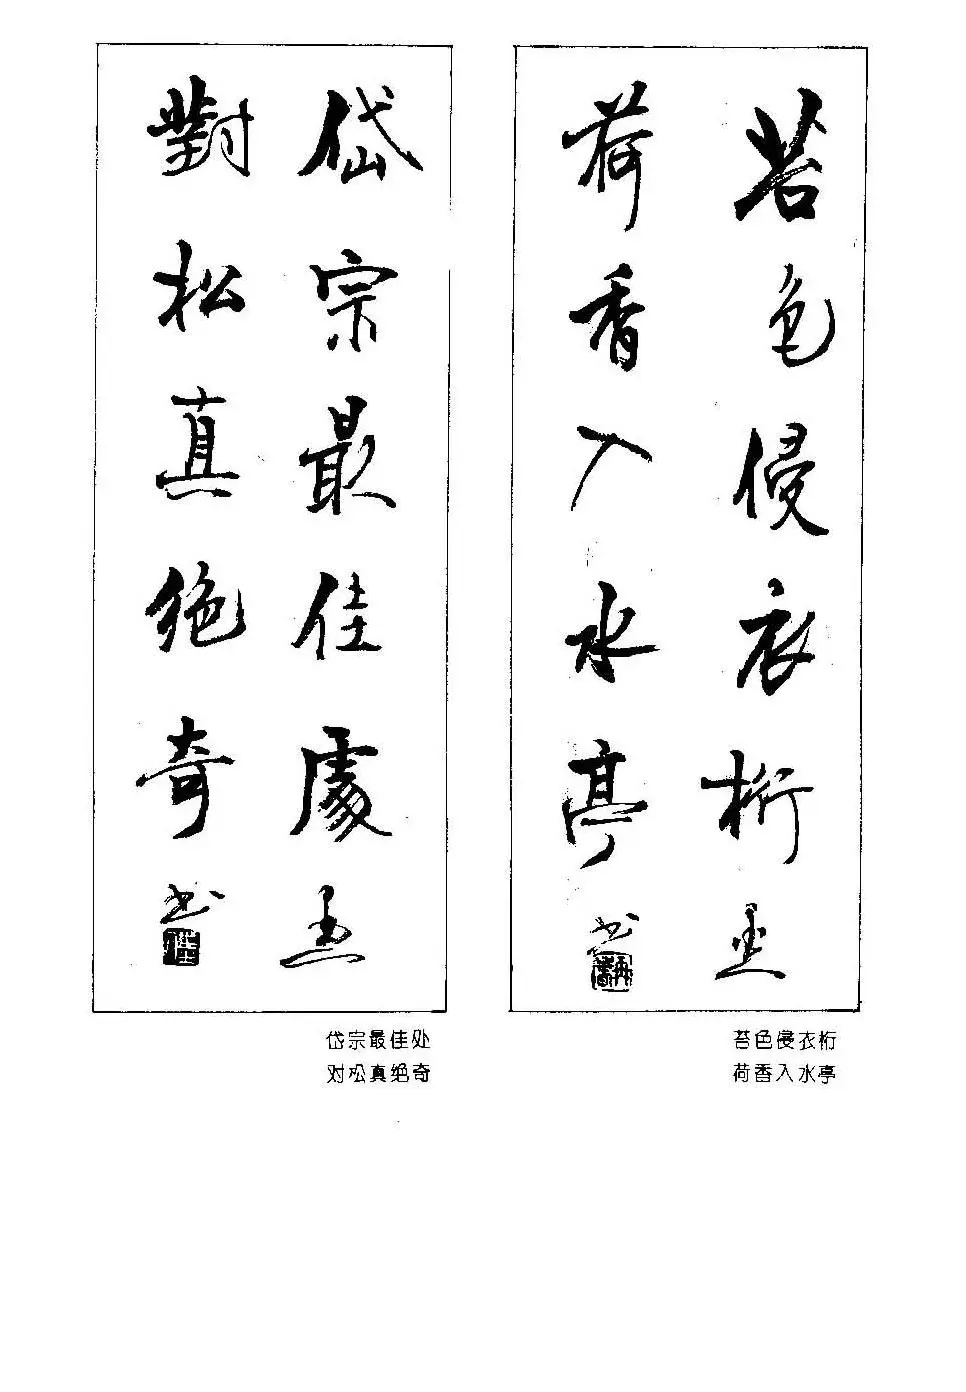 苔色侵衣桁
荷香入水亭
书
苔色侵衣桁
荷香入水亭
岱宗最佳處
對松真絕奇
书
岱宗最佳处
对松真绝奇